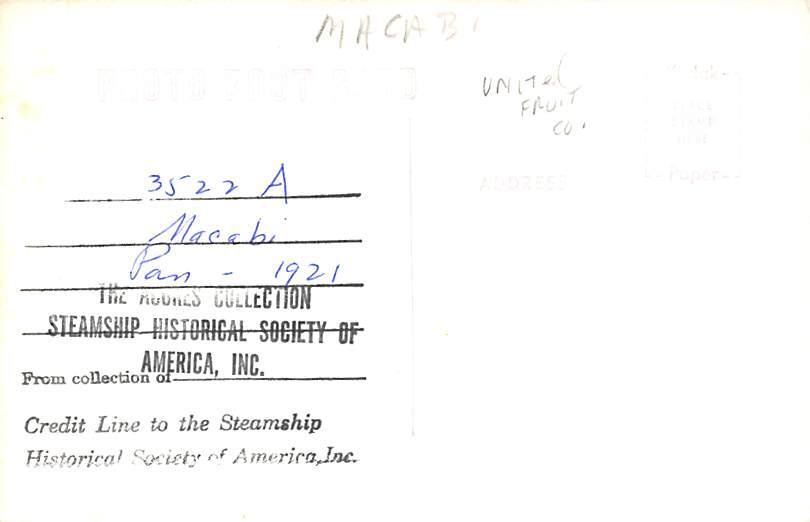 MACABI
PHOTO POST CARD
UNITED
FRUIT
CO.
Kodak
PLACE
STAMP
HERE
Paper
ADDRESS
3522 A
Macabi
Pan - 1921
THE COLLECTION
STEAMSHIP HISTORICAL SOCIETY OF
AMERICA, INC.
From collection of
Credit Line to the Steamship
Historical Society of America, Inc.